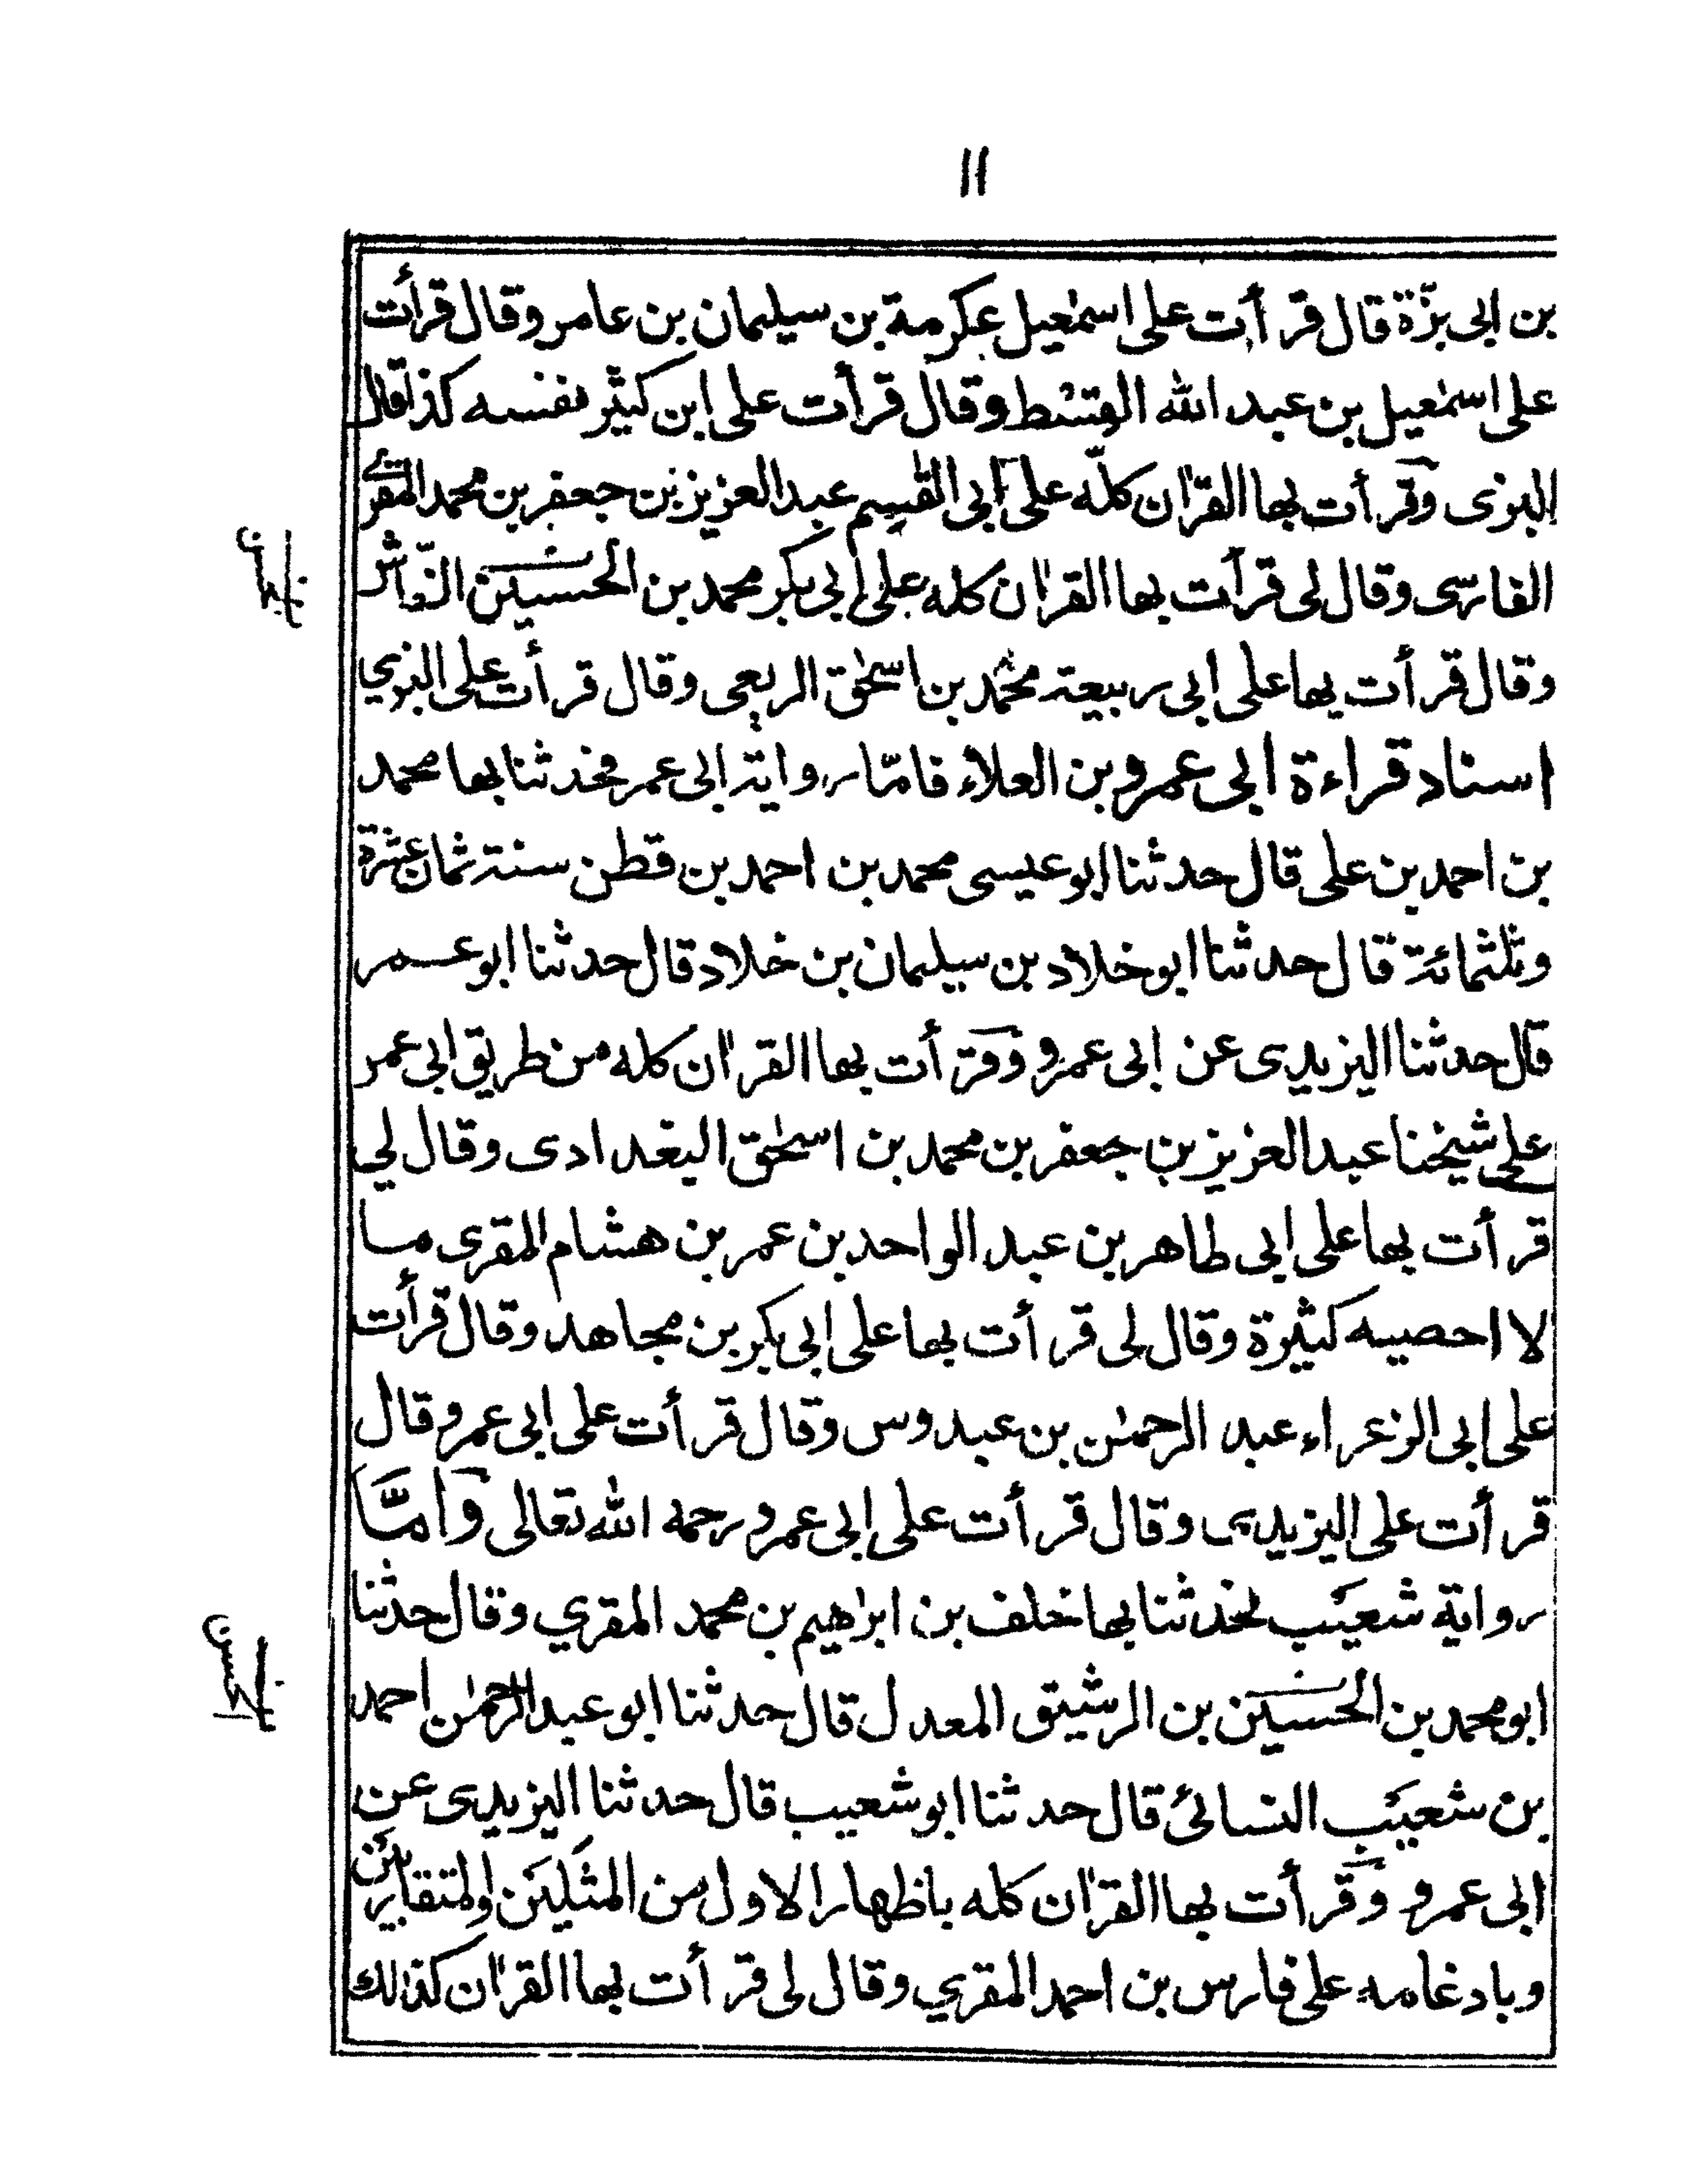 ١١
بن ابى بزّة قال قرأت على اسمٰعيل عكرمة بن سيليمان بن عامر وقال قرأت
على اسمٰعيل بن عبد الله القسط وقال قرأت على ابن كثير نفسه كذا قال
البزى وقرأت بها القرٰان كلّه على ابى القٰسم عبد العزيز بن جعفر بن محمد المقرئ
الفارسى وقال لى قرأت بها القرٰان كله على ابى بكر محمد بن الحسين النقاش
وقال قرأت بها على ابى ربيعة محمد بن اسحٰق الربعى وقال قرأت على البزي
اسناد قراءة ابى عمرو بن العلاء فامّا رواية ابى عمر فحدثنا بها محمد
بن احمد بن على قال حدثنا ابو عيسى محمد بن احمد بن قطن سنة ثمان عشرة
وثلثمائة قال حدثنا ابو خلاد بن سيليمان بن خلاد قال حدثنا ابو عمر
قال حدثنا اليزيدى عن ابى عمرو وقرأت بها القرٰان كله من طريق ابى عمر
على شيخنا عبد العزيز بن جعفر بن محمد بن اسحٰق البغدادى وقال لي
قرأت بها على ابى طاهر بن عبد الواحد بن عمر بن هشام المقرى ما
لا احصيه كثيرة وقال لى قرأت بها على ابى بكر بن مجاهد وقال قرأت
على ابى الزعراء عبد الرحمٰن بن عبدوس وقال قرأت على ابى عمرو قال
قرأت على اليزيدى وقال قرأت على ابى عمرو رحمه الله تعالى وَامَّا
رواية شعيب فحدثنا بها خلف بن ابرٰهيم بن محمد المقري وقال حدثنا
ابو محمد بن الحسين بن الرشيق المعدل قال حدثنا ابو عبد الرحمٰن احمد
بن شعيب النسائى قال حدثنا ابو شعيب قال حدثنا اليزيدى عن
ابى عمرو وقرأت بها القرٰان كله باظهار الاول من المثلين والمتقاربين
وبادغامه على فارس بن احمد المقري وقال لى قرأت بها القرٰان كذٰلك